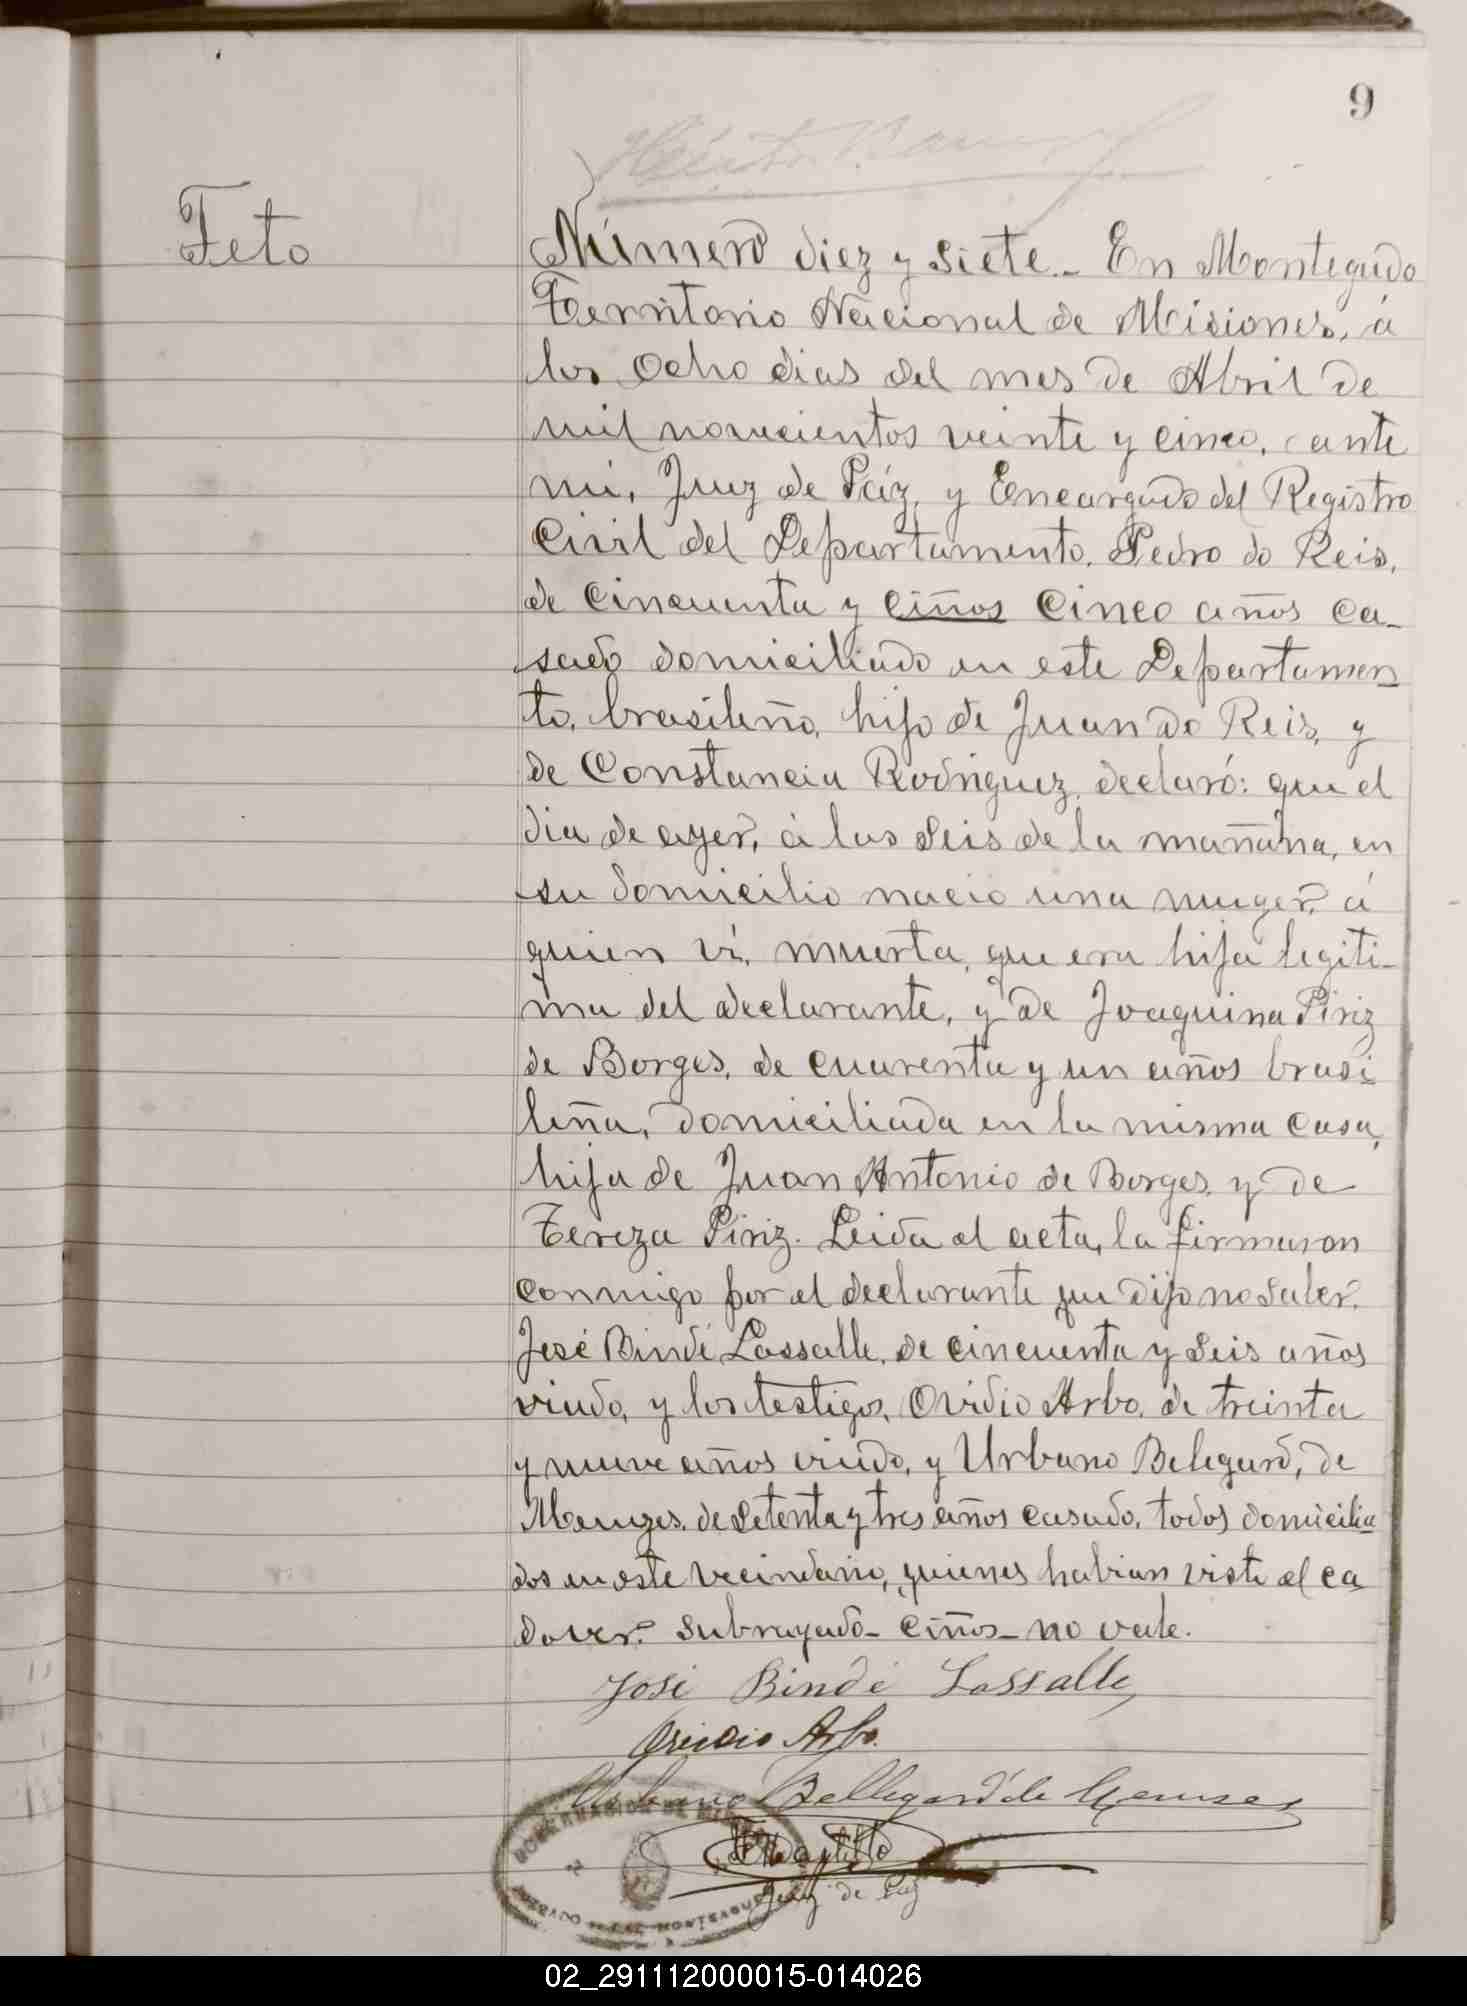 9
Feto
Número diez y siete.- En Monteagudo
Territorio Nacional de Misiones, á
los ocho dias del mes de Abril de
mil novecientos veinte y cinco, ante
mi, Juez de Páz, y Encargado del Registro
Civil del Departamento, Pedro do Reis,
de cincuenta y ciños cinco años ca-
sado domiciliado en este Departamen-
to, brasileño, hijo de Juan do Reis, y
de Constancia Rodriguez, declaró: que el
dia de ayer, á las seis de la mañana, en
su domicilio nació una muger, á
quien ví, muerta, que era hija legiti-
ma del declarante, y de Joaquina Piriz
de Borges, de cuarenta y un años brasi-
leña, domiciliada en la misma casa,
hija de Juan Antonio de Borges, y de
Tereza Piriz. Leida el acta, la firmaron
conmigo por el declarante que dijo no saber.
José Bindé Lassalle, de cincuenta y seis años
viudo, y los testigos, Ovidio Arbo, de treinta
y nueve años viudo, y Urbano Belegard, de
Menezes, de setenta y tres años casado, todos domicilia-
dos en este vecindario, quienes habian visto el ca-
daver. Subrayado- ciños- no vale.
José Bindé Lassalle
Ovidio Arbo.
Urbano Bellegard de Menezes
Juez de Paz
02_291112000015-014026